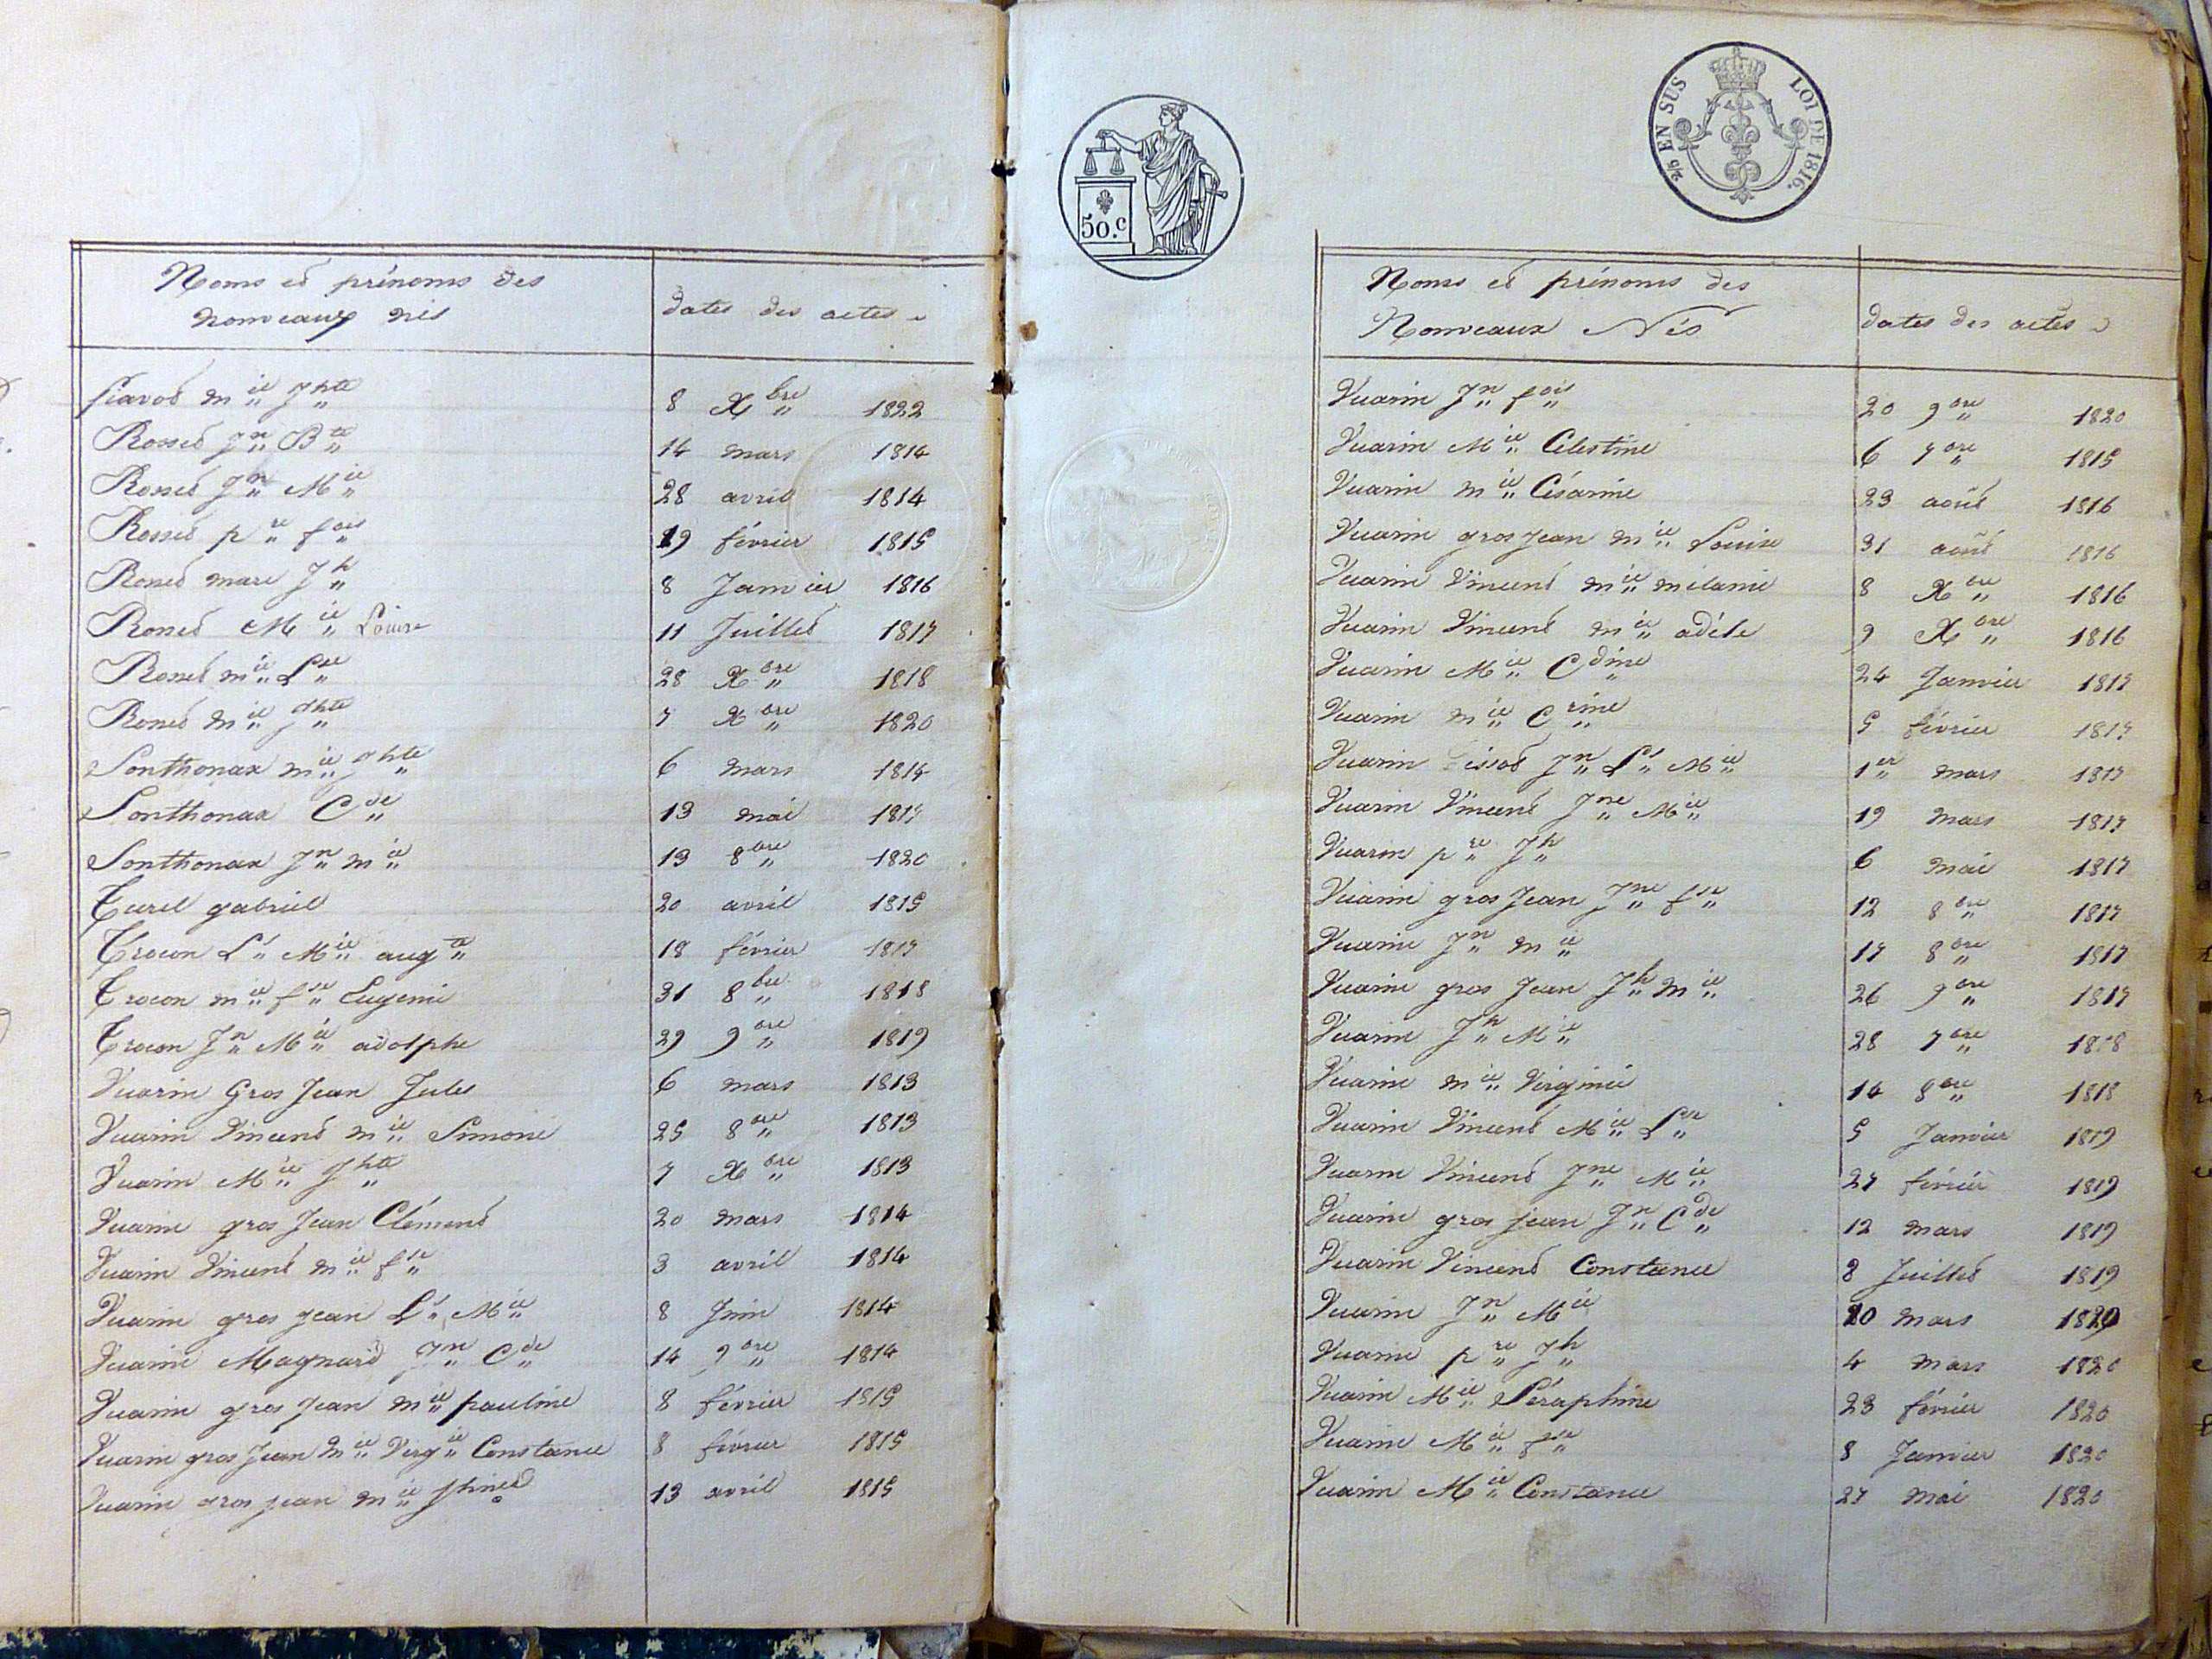 Noms et prénoms des
nouveaux nés
dates des actes
Piavod mie Jhte 8 Xbre 1822
Rossed Jn Bte 14 mars 1814
Rossed Jn Mie 28 avril 1814
Rossed pre fois 19 février 1815
Rossed marc Jh 8 Janvier 1816
Rossed Mie Louise 11 Juilled 1817
Rossed mie Lse 28 Xbre 1818
Rossed mie Jhte 7 Xbre 1820
Sonthonax mie Jhte 6 mars 1814
Sonthonax Cde 13 mai 1817
Sonthonax Jn mie 13 8bre 1820
Turel gabriel 20 avril 1815
Crocon Ls Mie augte 18 février 1817
Crocon mie fse Eugenie 31 8bre 1818
Crocon Jn Mie adolphe 29 9bre 1819
Vuarin Gros Jean Jules 6 mars 1813
Vuarin Vincend mie Simone 25 8bre 1813
Vuarin Mie Jhte 7 Xbre 1813
Vuarin gros Jean Clémend 20 mars 1814
Vuarin Vincend mie fse 3 avril 1814
Vuarin gros jean Ls Mie 8 Juin 1814
Vuarin Magnard Jn Cde 14 9bre 1814
Vuarin gros jean mie pauline 8 février 1815
Vuarin gros Jean mie Virgie Constance 8 février 1815
Vuarin gros jean mie 13 avril 1815
50.c
2/5 EN SUS LOI DE 1816.
Noms et prénoms des
Nouveaux Nés
dates des actes
Vuarin Jn fois 20 9bre 1820
Vuarin Mie Célestine 6 7bre 1815
Vuarin mie Césarine 23 aoûd 1816
Vuarin gros jean mie Louise 31 aoûd 1816
Vuarin Vincend mie mélanie 8 Xbre 1816
Vuarin Vincend mie adéle 9 Xbre 1816
Vuarin Mie Cdine 24 Janvier 1817
Vuarin mie Crine 5 février 1817
Vuarin Jn Ls Mie 1er mars 1817
Vuarin Vincend Jne Mie 19 mars 1817
Vuarin pre Jh 6 mai 1817
Vuarin gros Jean Jne fse 12 8bre 1817
Vuarin Jn mie 17 8bre 1817
Vuarin gros Jean Jh mie 26 9bre 1817
Vuarin Jh Mie 28 7bre 1818
Vuarin mie Virginie 14 8bre 1818
Vuarin Vincend Mie Lse 5 Janvier 1819
Vuarin Vincend Jne Mie 27 février 1819
Vuarin gros jean Jn Cde 12 mars 1819
Vuarin Vincend Constance 8 Juilled 1819
Vuarin Jn Mie mars
Vuarin pre Jh 4 mars 1820
Vuarin Mie Séraphine 23 février 1820
Vuarin Mie fse 8 Janvier 1820
Vuarin Mie Constance 27 mai 1820